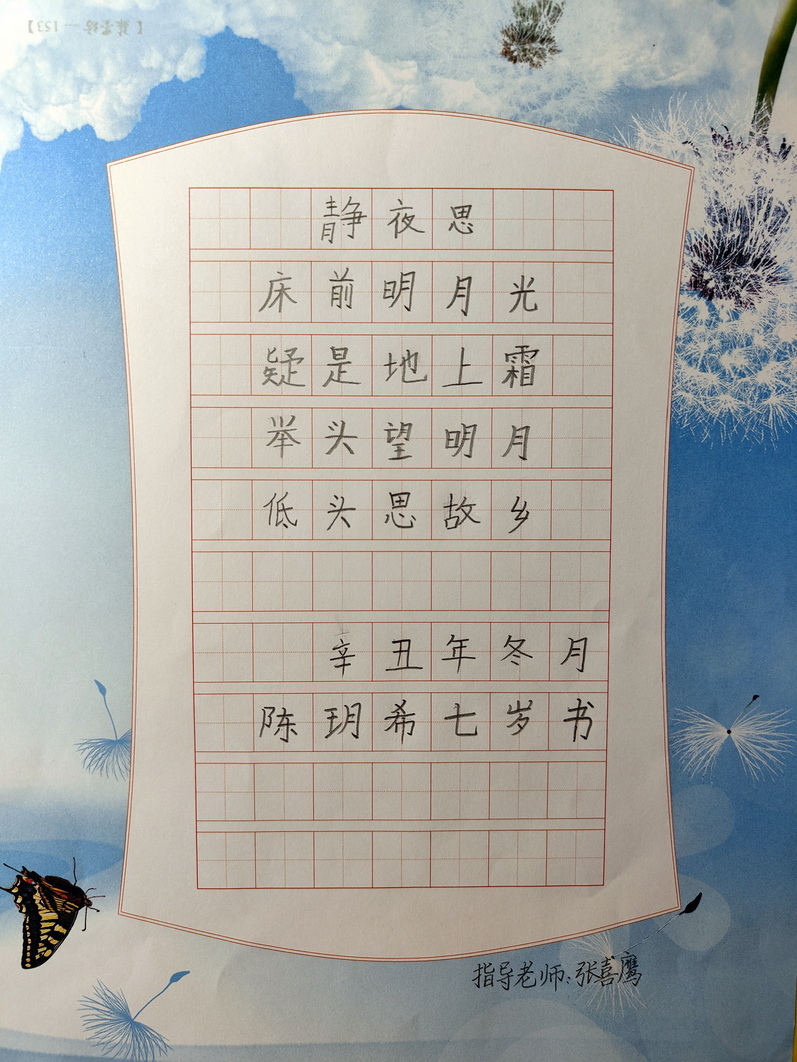 静夜思
床前明月光
疑是地上霜
举头望明月
低头思故乡
辛丑年冬月
陈玥希七岁书
指导老师:张喜鹰